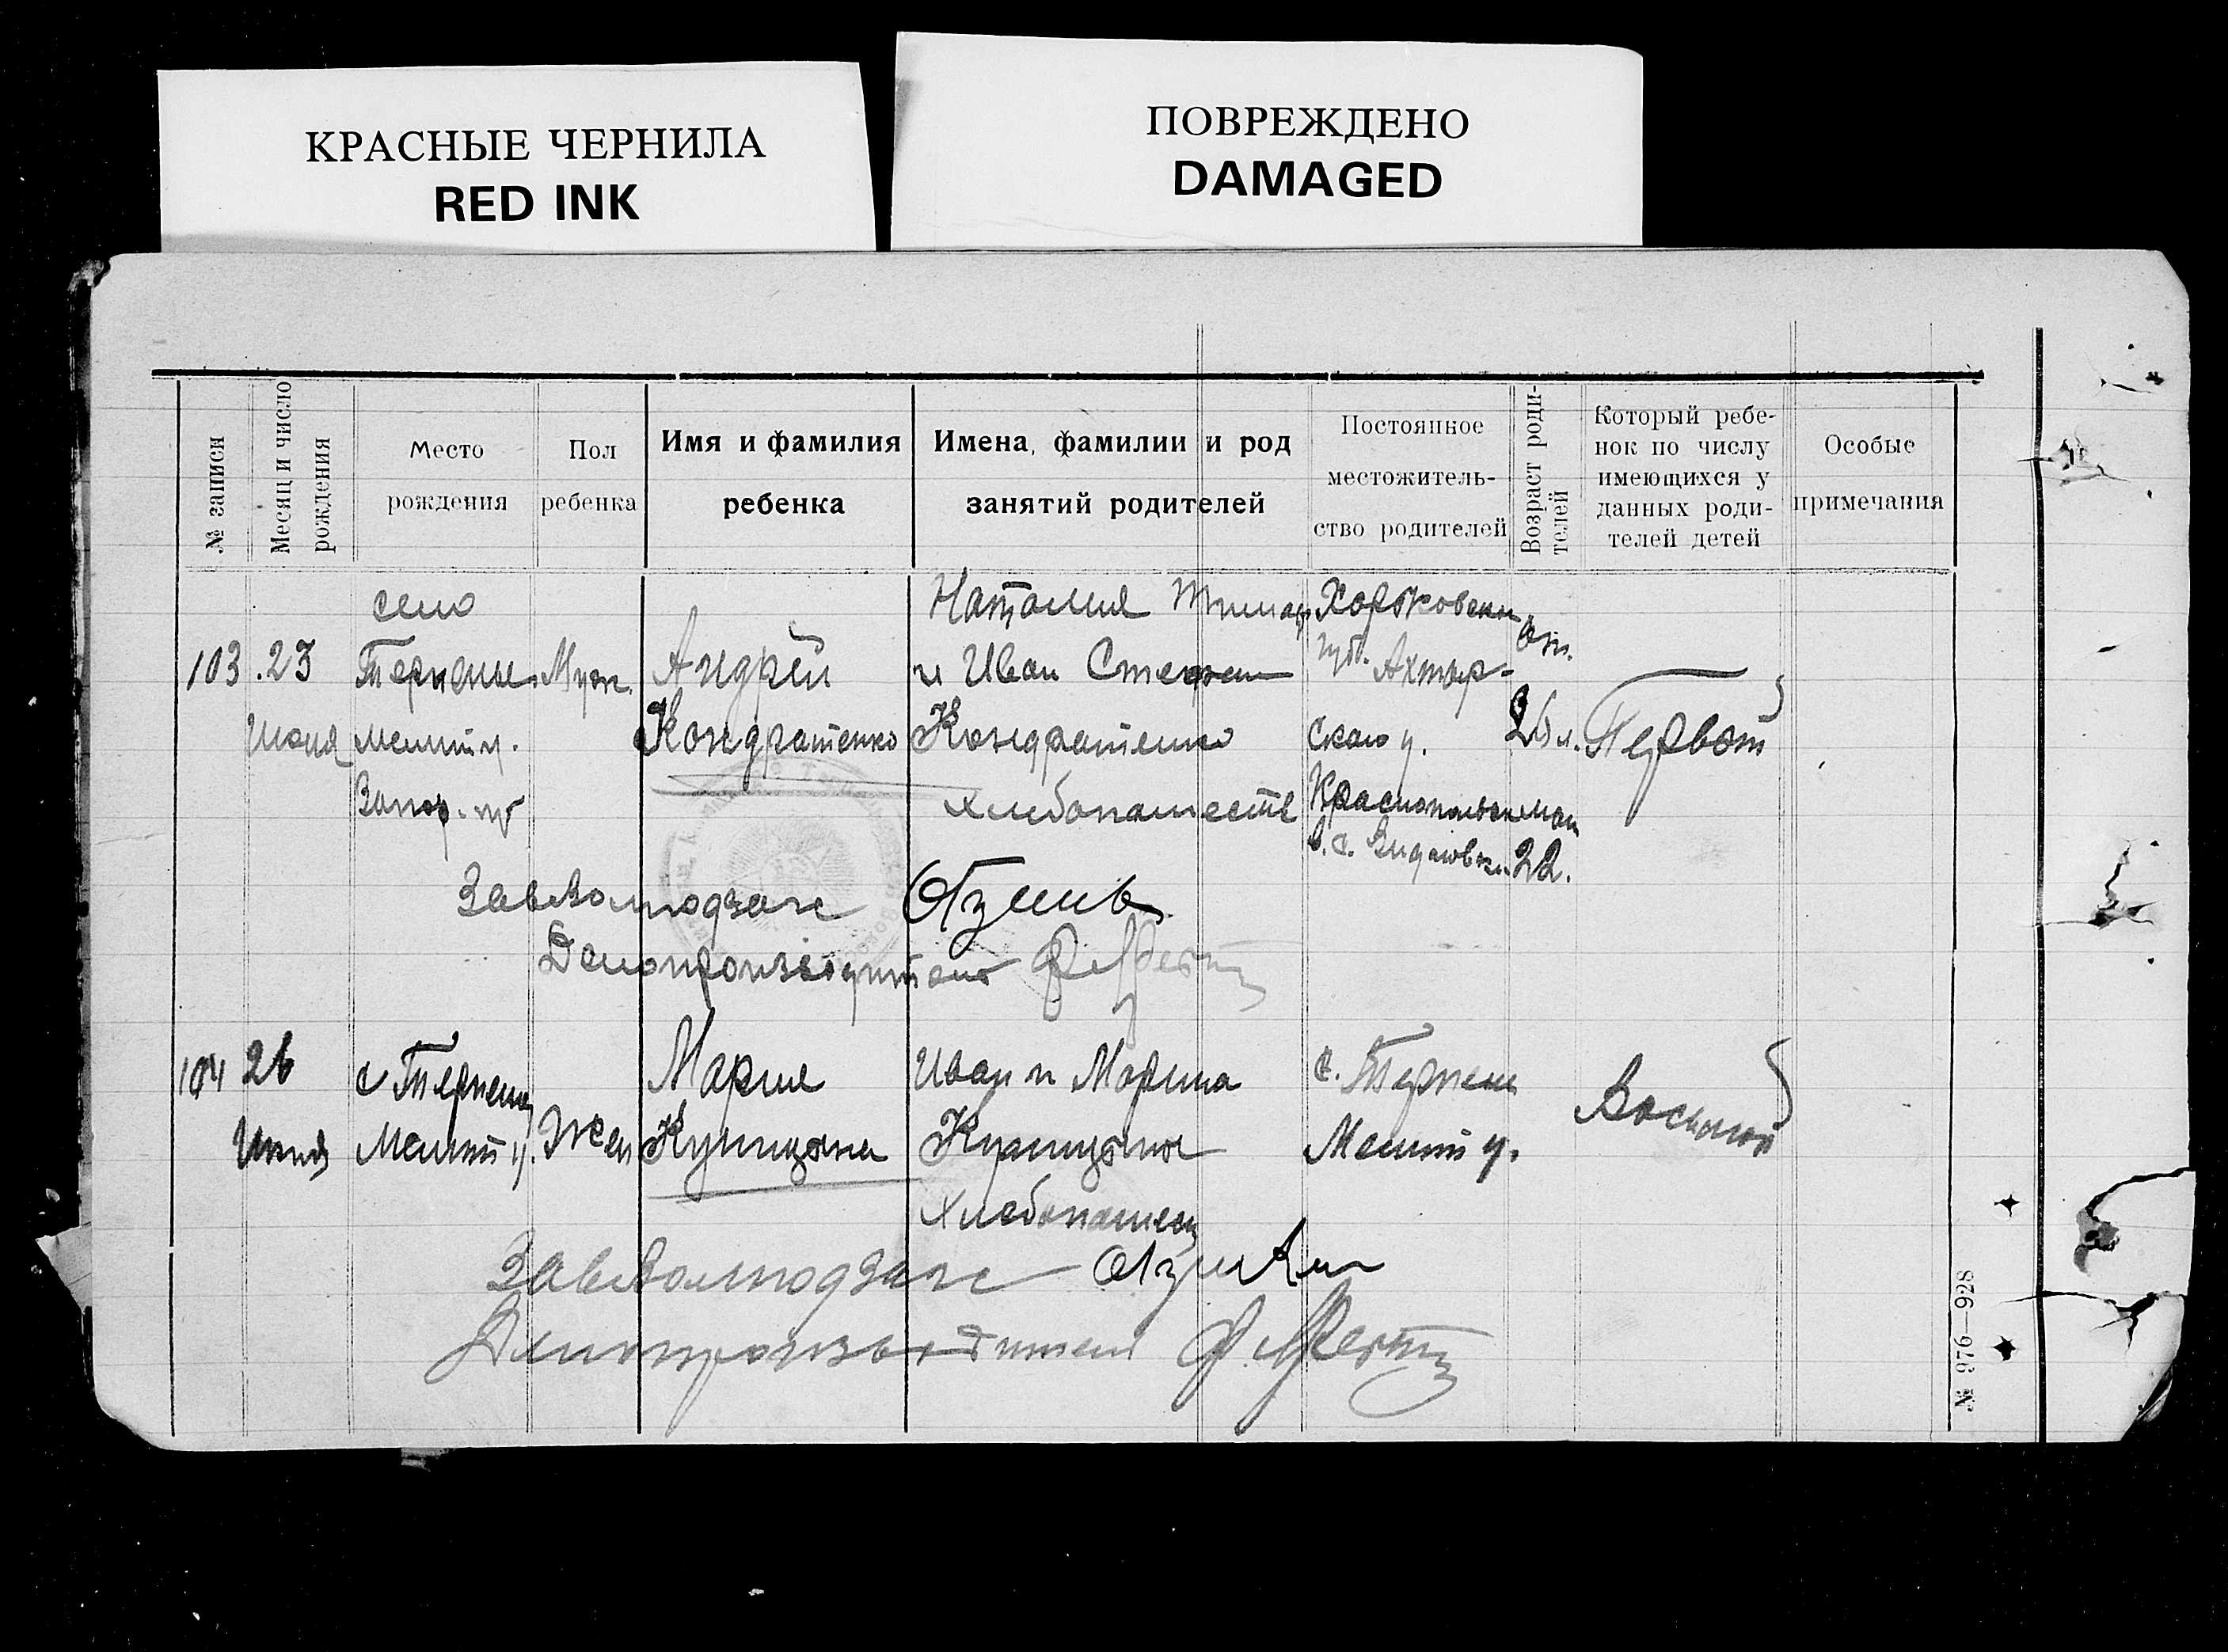 КРАСНЫЕ ЧЕРНИЛА
RED INK
ПОВРЕЖДЕНО
DAMAGED
№ записи
Месяц и число
рождения
Место
рождения
Пол
ребенка
Имя и фамилия
ребенка
Имена, фамилии и род
занятий родителей
Постоянное
местожитель-
ство родителей
Возраст роди-
телей
Который ребе-
нок по числу
имеющихся у
данных роди-
телей детей
Особые
примечания
103
23
Июня
село
Терпение
Мелит у.
Запор. губ
Муж.
Андрей
Кондратенко
Наталия
и Иван Степан
Кондратенко
хлебопашеств
Харьковской
губ. Ахтыр-
ского у.
Краснопольской
в. с.
От.
26 л.
мат
22.
Первый
Завволподзагс
Делопроизводитель
104
26
Июня
с Терпение
Мелит у.
Жен
Мария
Купицына
Иван и Марина
Купицына
хлебопашец
с. Терпение
Мелит у.
Восьмой
Завволподзагс
Делопроизводитель
№ 976—928